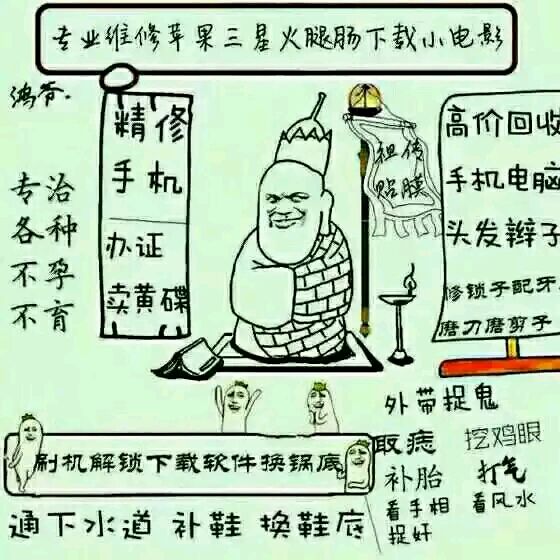 专业维修苹果三星火腿肠下载小电影
鸿香.
专治
各种
不孕
不育
精修
手机
办证
卖黄碟
祖传
贴膜
高价回收
手机电脑
头发辫子
修锁子配牙
磨刀磨剪子
外带捉鬼
取痣
挖鸡眼
补胎
打气
看手相
看风水
捉奸
刷机解锁下载软件换锅底
通下水道 补鞋 换鞋底